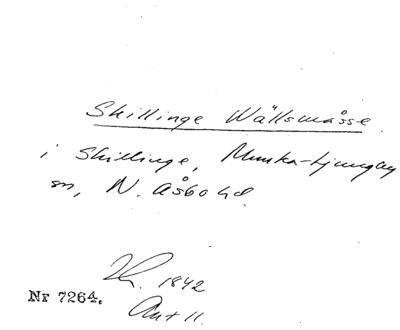 Skillinge Wällsmåsse
i Skillinge, Munka-Ljungby
sn, N. Åsbo hd.
1842
Nr 7264.
Ant 11.